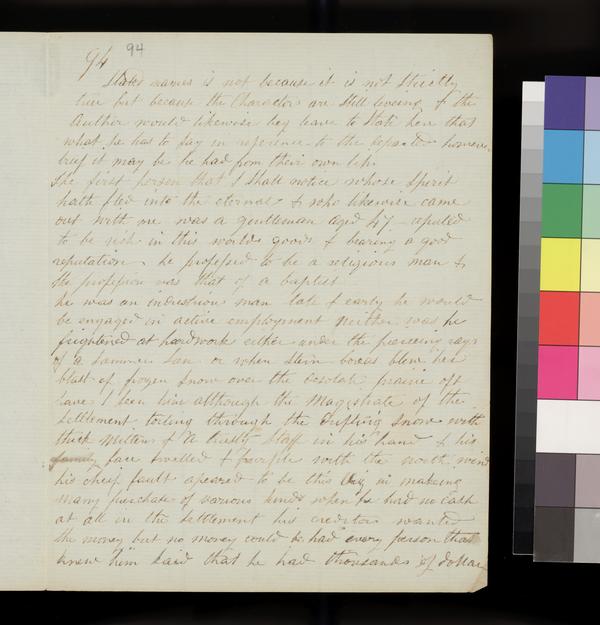 94 94
Stated names is not because it is not strictly
true but because the Characters are still liveing & the
Author would likewise beg leave to state here that
what he has to say in reference to the departed however
brief it may be he had from their own lips.
The first person that I shall notice whose Spirit
hath fled into the eternal & who likewise came
out with me was a gentleman aged 47 reputed
to be rich in this worlds goods & bearing a good
reputation. he professed to be a religious man &
the profession was that of a baptist
he was an industrious man late & early he would
be engaged in active employment neither was he
frightened at hardwork either under the pierceing rays
of a summer sun or when stern boreas blew his
blast of frozen snow over the desolate prairie oft
have I seen him although the Magistrate of the
settlement toiling through the drifting snow with
thick mittens & a trusty staff in his hand & his
face swelled & purple with the north wind
his cheif fault apeared to be this in makeing
many purchase of various kinds when he had no Cash
at all in the settlement his creditors wanted
the money but no money could be had every person that
knew him said that he had thousands of dollars